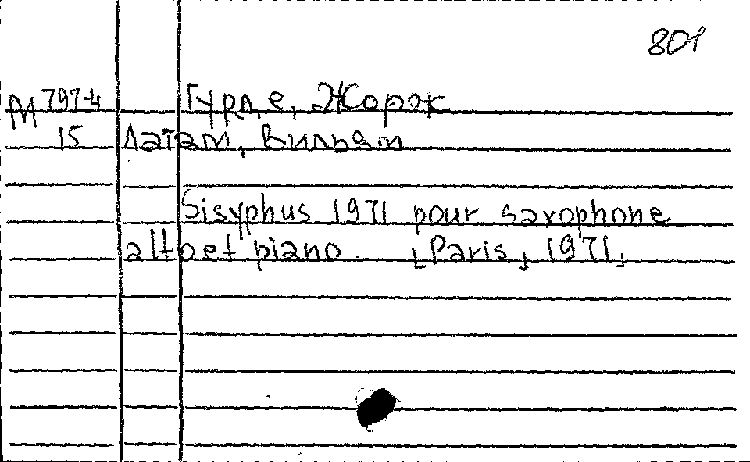 801
М 797-4 Гурде, Жорж
15 Латам, Вильям
Sisyphus 1971 pour saxophone
alto et piano. [Paris, 1971].